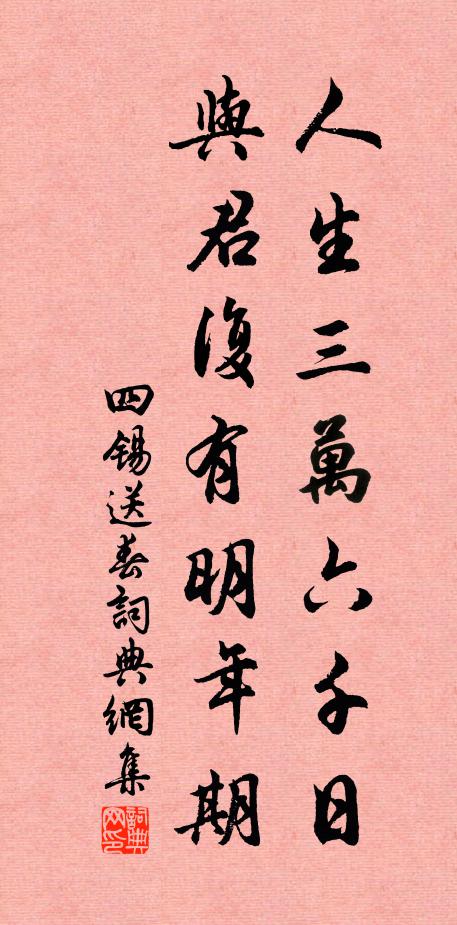 人生三萬六千日
與君復有明年期
四錫送春詞典網集
詞典
网印